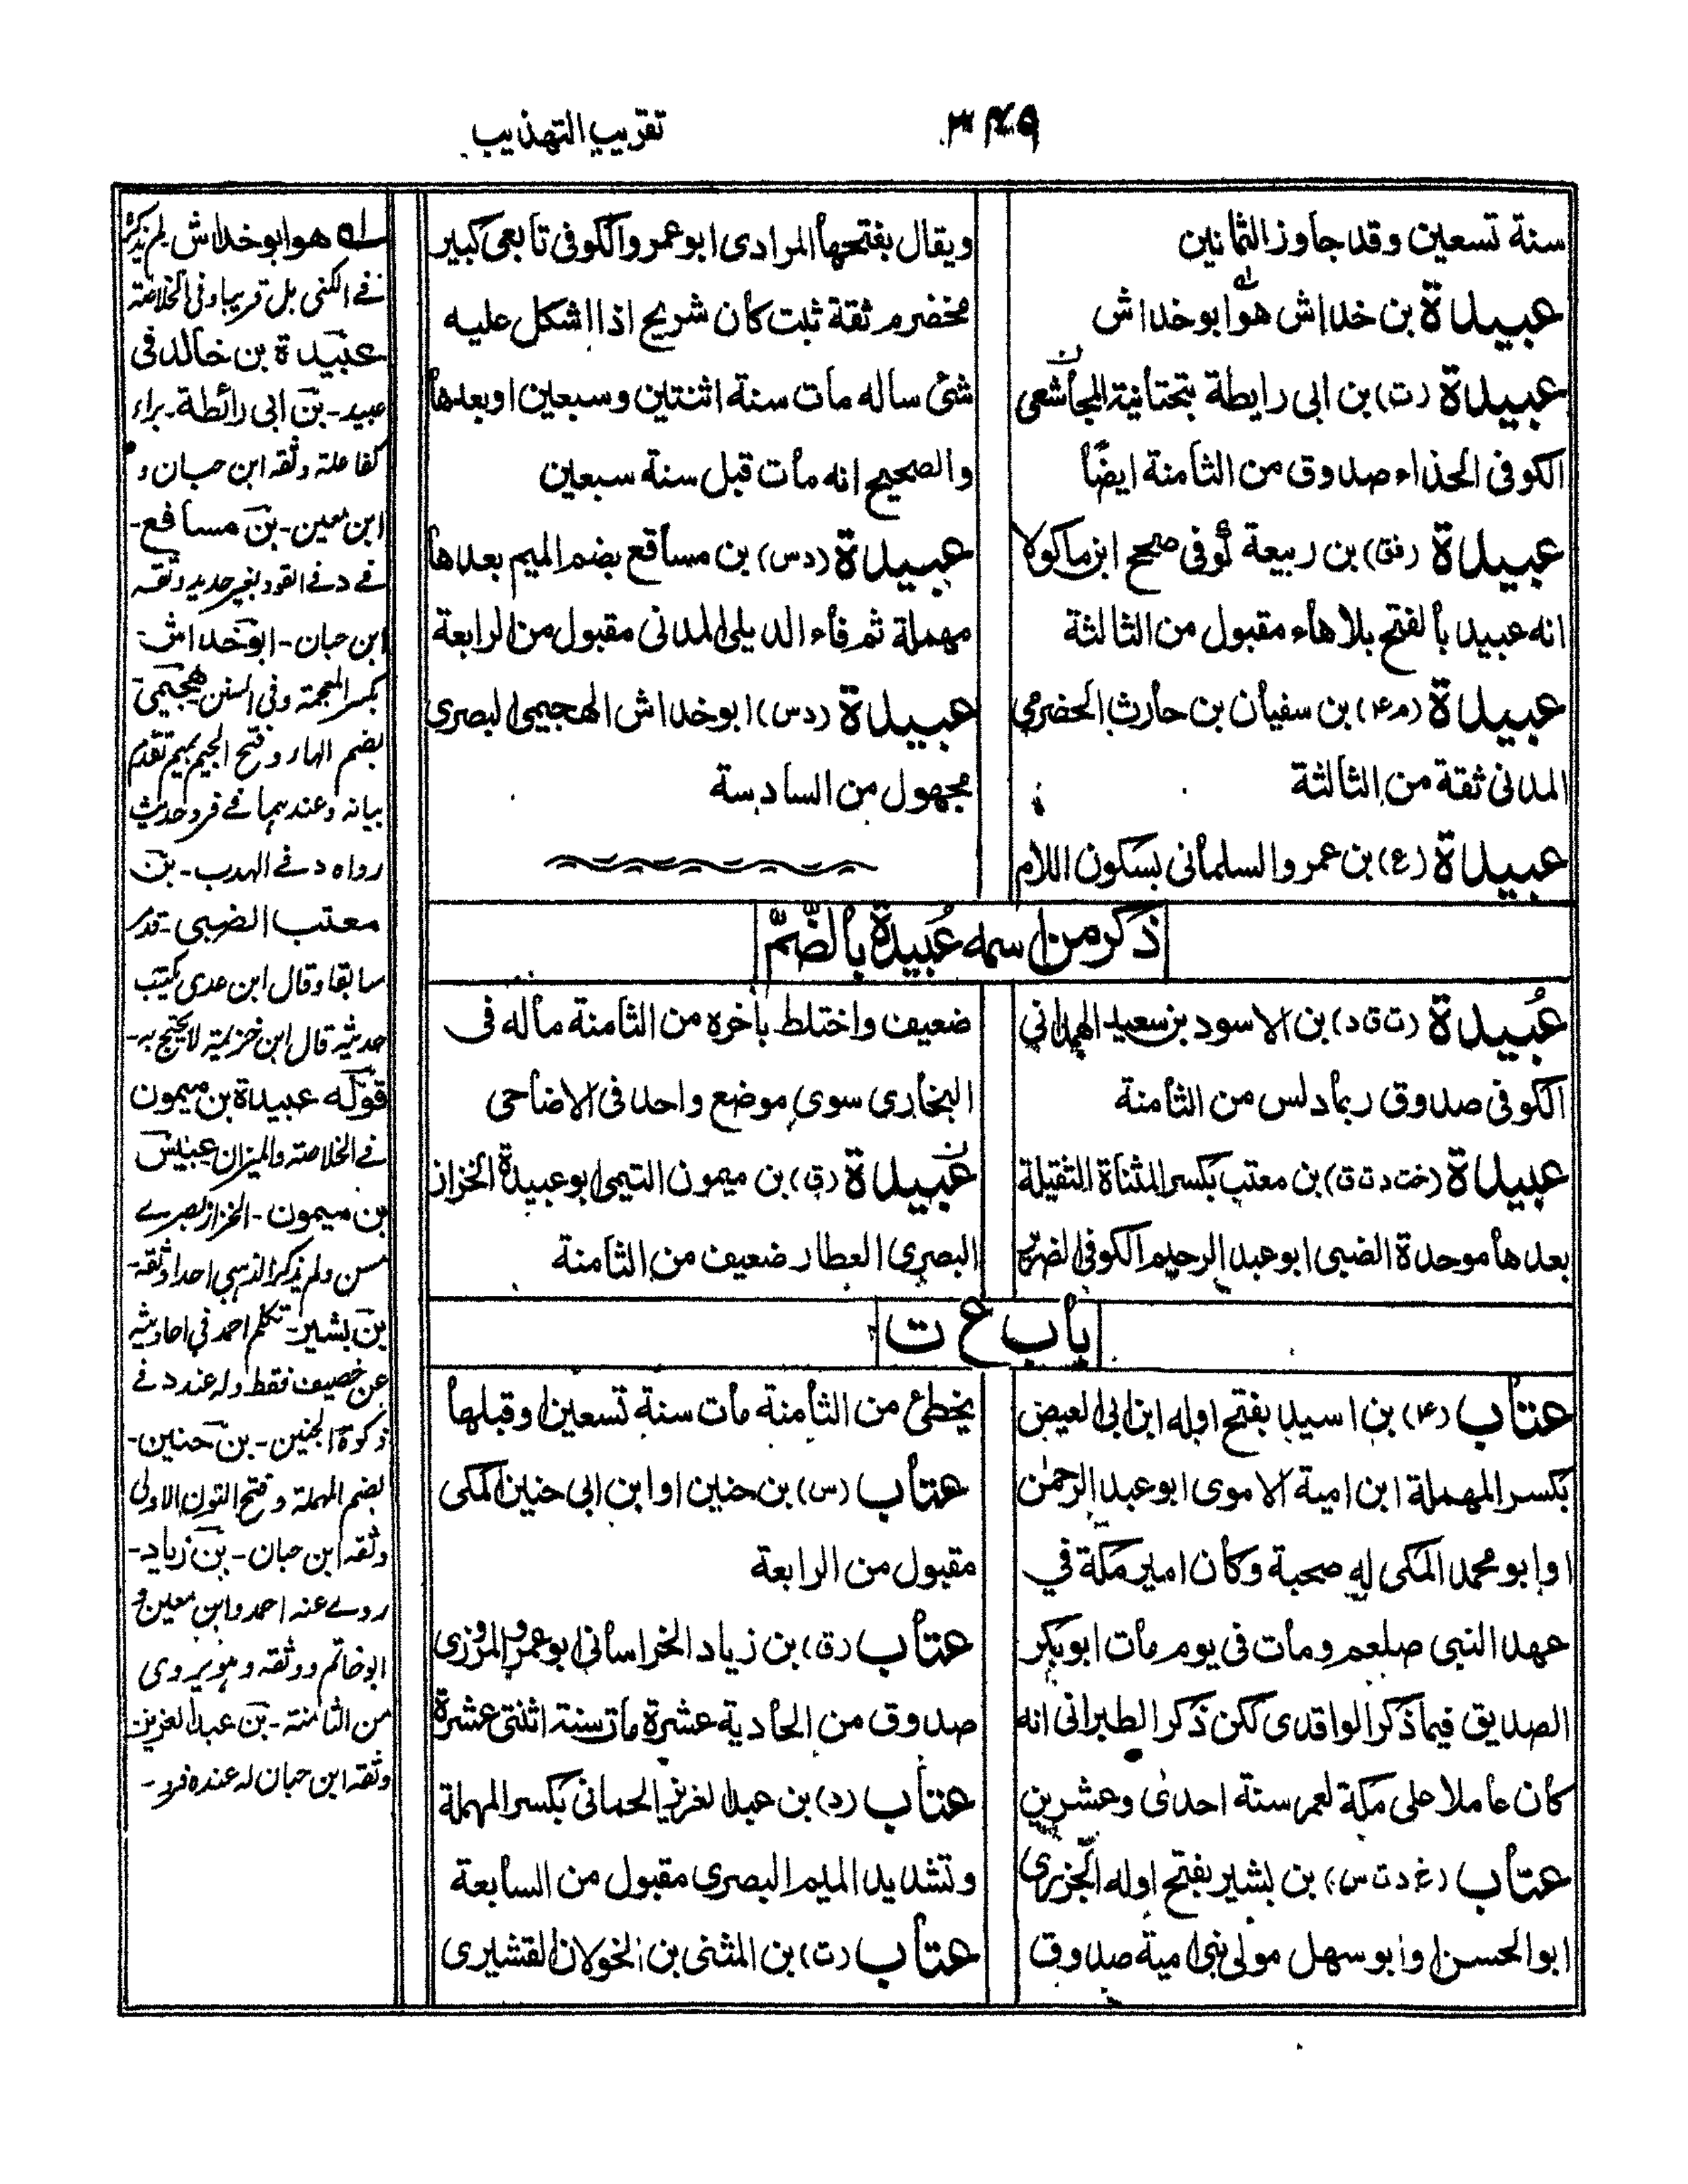 تقريب التهذيب
٣٤٩
سنة تسعين وقد جاوز الثمانين
عبيدة بن خداش هو ابو خداش
عبيدة (ت) بن ابى رايطة بتحتانية المجاشعى
الكوفى الحذاء صدوق من الثامنة ايضًا
عبيدة (فق) بن ربيعة كوفى صحح ابن ماكولا
انه عبيد بالفتح بلا هاء مقبول من الثالثة
عبيدة (م۴) بن سفيان بن حارث الحضرمي
المدنى ثقة من الثالثة
عبيدة (ع) بن عمرو السلمانى بسكون اللام
ويقال بفتحها المرادى ابو عمرو الكوفى تابعى كبير
مخضرم ثقة ثبت كان شريح اذا اشكل عليه
شئ ساله مات سنة اثنتين وسبعين او بعدها
والصحيح انه مات قبل سنة سبعين
عبيدة (دس) بن مسافع بضم الميم بعدها
مهملة ثم فاء الديلى المدنى مقبول من الرابعة
عبيدة (دس) ابو خداش الهجيمى البصري
مجهول من السادسة
ذكر من اسمه عُبيدة بالضّمّ
عُبيدة (ت ق د) بن الاسود بن سعيد الهمدانى
الكوفى صدوق ربما دلس من الثامنة
عبيدة (خت د ت ق) بن معتب بكسر المثناة الثقيلة
بعدها موحدة الضبى ابو عبد الرحيم الكوفى الضرير
ضعيف واختلط باخره من الثامنة ماله فى
البخارى سوى موضع واحد فى الاضاحى
عبيدة (ق) بن ميمون التيمى ابو عبيدة الخزاز
البصري العطار ضعيف من الثامنة
باب ع ت
عتاب (۴) بن اسيد بفتح اوله ابن ابى العيص
بكسر المهملة ابن امية الاموى ابو عبد الرحمٰن
او ابو محمد المكى له صحبة وكان امير مكة في
عهد النبى صلعم ومات فى يوم مات ابو بكر
الصديق فيما ذكر الواقدى لكن ذكر الطبرانى انه
كان عاملا على مكة لعمر سنة احدى وعشرين
عتاب (خ د ت س) بن بشير بفتح اوله الجزري
ابو الحسن او ابو سهل مولى بنى امية صدوق
يخطئ من الثامنة مات سنة تسعين او قبلها
عتاب (س) بن حنين او ابن ابى حنين المكى
مقبول من الرابعة
عتاب (ق) بن زياد الخراسانى ابو عمرو المروزى
صدوق من الحادية عشرة مات سنة اثنتى عشرة
عتاب (د) بن عبد العزيز الحمانى بكسر المهملة
وتشديد الميم البصرى مقبول من السابعة
عتاب (ت) بن المثنى بن الخولان القشيرى
له هو ابو خداش لم يذكر
فے الكنى بل قريبا وفى الخلاصة
عبيدة بن خالد فى
عبيد - بن ابى رائطة - براء
كفاعلة وثقه ابن حبان و
ابن معين - بن مسافع -
فے د فے القود بغير حديد وثقه
ابن حبان - ابو خداش
بكسر المعجمة وفى السنن هجيمى
بضم الهاء وفتح الجيم بميم تقدم
بيانه وعندهما فے فرد حديث
رواه د فے الهدب - بن
معتب الضبى - قد مر
سابقا وقال ابن عدى يكتب
حديثه قال ابن خزيمة لا يحتج به -
قوله عبيدة بن ميمون
فے الخلاصة والميزان عبيس
بن ميمون - الخزاز بصرے
مسن ولم يذكر الذهبى احدا وثقه -
بن بشير - تكلم احمد في احاديثه
عن خصيف فقط وله عند د فے
ذكوة الجنين - بن حنين -
بضم المهملة وفتح النون الاولى
وثقه ابن حبان - بن زياد -
روے عنه احمد وابن معين و
ابو حاتم ووثقه وهو يروى
من الثامنة - بن عبد العزيز
وثقه ابن حبان له عنده فرد -